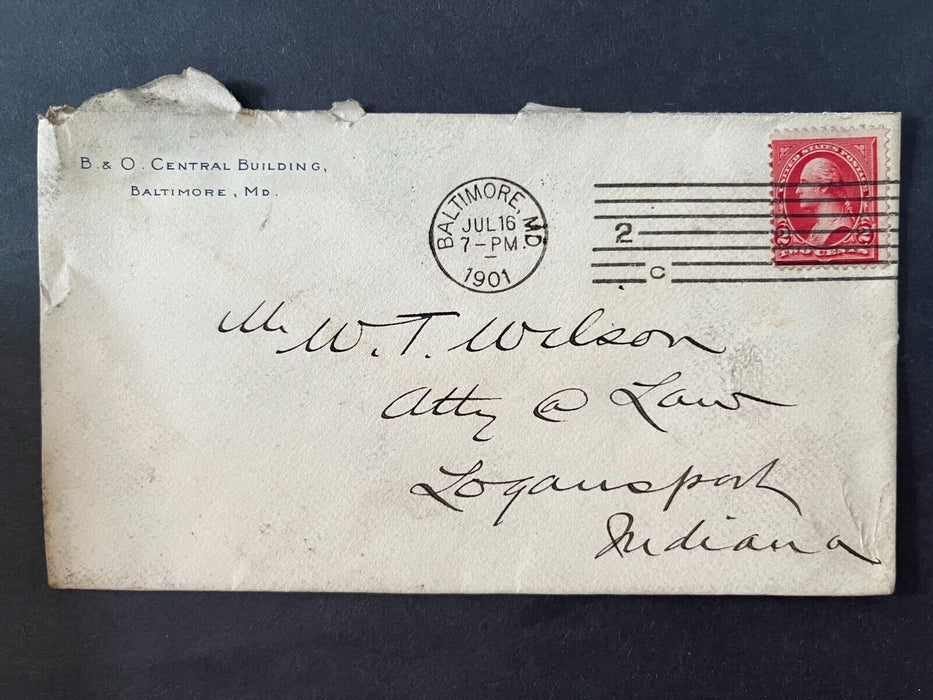 B. & O. Central Building,
Baltimore, Md.
BALTIMORE, MD.
JUL 16
7-PM
1901
2
C
UNITED STATES POSTAGE
2 2
TWO CENTS
Mr W. T. Wilson
Atty @ Law
Logansport
Indiana